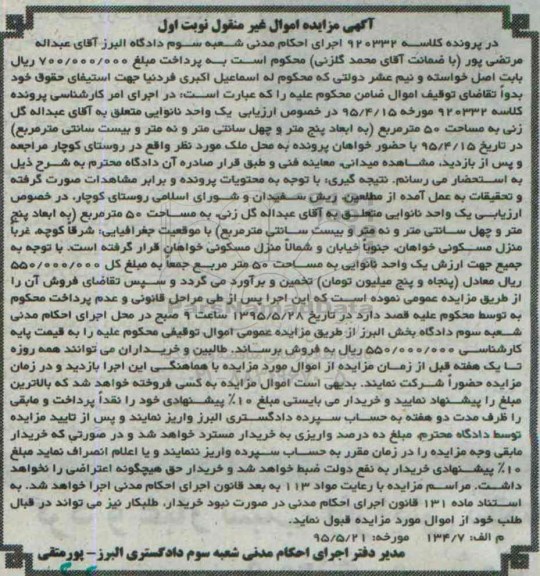 آگهی مزایده اموال غیر منقول نوبت اول
در پرونده کلاسه ۹۲۰۳۳۲ اجرای احکام مدنی شعبه سوم دادگاه البرز آقای عبداله
مرتضی پور (با ضمانت آقای محمد گلزنی) محکوم است به پرداخت مبلغ ۷۰۰/۰۰۰/۰۰۰ ریال
بابت اصل خواسته و نیم عشر دولتی که محکوم له اسماعیل اکبری فردنیا جهت استیفای حقوق خود
بدواً تقاضای توقیف اموال ضامن محکوم علیه را که عبارت است: در اجرای امر کارشناسی پرونده
کلاسه ۹۲۰۳۳۲ مورخه ۹۵/۴/۱۵ در خصوص ارزیابی یک واحد نانوایی متعلق به آقای عبداله گل
زنی به مساحت ۵۰ مترمربع (به ابعاد پنج متر و چهل سانتی متر و نه متر و بیست سانتی مترمربع)
در تاریخ ۹۵/۴/۱۵ با حضور خواهان پرونده به محل ملک مورد نظر واقع در روستای کوچار مراجعه
و پس از بازدید، مشاهده میدانی، معاینه فنی و طبق قرار صادره آن دادگاه محترم به شرح ذیل
به استحضار می رسانم. نتیجه گیری: با توجه به محتویات پرونده و برابر مشاهدات صورت گرفته
و تحقیقات به عمل آمده از مطلعین، ریش سفیدان و شورای اسلامی روستای کوچار، در خصوص
ارزیابی یک واحد نانوایی متعلق به آقای عبداله گل زنی، به مساحت ۵۰ مترمربع (به ابعاد پنج
متر و چهل سانتی متر و نه متر و بیست سانتی مترمربع) با موقعیت جغرافیایی: شرقاً کوچه، غرباً
منزل مسکونی خواهان، جنوباً خیابان و شمالاً منزل مسکونی خواهان قرار گرفته است. با توجه به
جمیع جهت ارزش یک واحد نانوایی به مساحت ۵۰ متر مربع جمعاً به مبلغ کل ۵۵۰/۰۰۰/۰۰۰
ریال معادل (پنجاه و پنج میلیون تومان) تخمین و برآورد می گردد و سپس تقاضای فروش آن را
از طریق مزایده عمومی نموده است که این اجرا پس از طی مراحل قانونی و عدم پرداخت محکوم
به توسط محکوم علیه قصد دارد در تاریخ ۱۳۹۵/۶/۲۸ ساعت ۹ صبح در محل اجرای احکام مدنی
شعبه سوم دادگاه بخش البرز از طریق مزایده عمومی اموال توقیفی محکوم علیه را به قیمت پایه
کارشناسی ۵۵۰/۰۰۰/۰۰۰ ریال به فروش برساند. طالبین و خریداران می توانند همه روزه
تا یک هفته قبل از زمان مزایده از اموال مورد مزایده با هماهنگی این اجرا بازدید و در زمان
مزایده حضوراً شرکت نمایند. بدیهی است اموال مزایده به کسی فروخته خواهد شد که بالاترین
مبلغ را پیشنهاد نمایید و خریدار می بایستی مبلغ ۱۰٪ پیشنهادی خود را نقداً پرداخت و مابقی
را ظرف مدت دو هفته به حساب سپرده دادگستری البرز واریز نمایند و پس از تایید مزایده
توسط دادگاه محترم، مبلغ ده درصد واریزی به خریدار مسترد خواهد شد و در صورتی که خریدار
مابقی وجه مزایده را در زمان مقرر به حساب سپرده واریز ننمایند و یا اعلام انصراف نماید مبلغ
۱۰٪ پیشنهادی خریدار به نفع دولت ضبط خواهد شد و خریدار حق هیچگونه اعتراضی را نخواهد
داشت. مراسم مزایده با رعایت مواد ۱۱۳ به بعد قانون اجرای احکام مدنی اجرا خواهد شد. به
استناد ماده ۱۳۱ قانون اجرای احکام مدنی در صورت نبود خریدار، طلبکار نیز می تواند در قبال
طلب خود از اموال مورد مزایده قبول نماید.
م الف: ۱۳۴/۷ مورخه: ۹۵/۵/۲۱
مدیر دفتر اجرای احکام مدنی شعبه سوم دادگستری البرز- پورمتقی